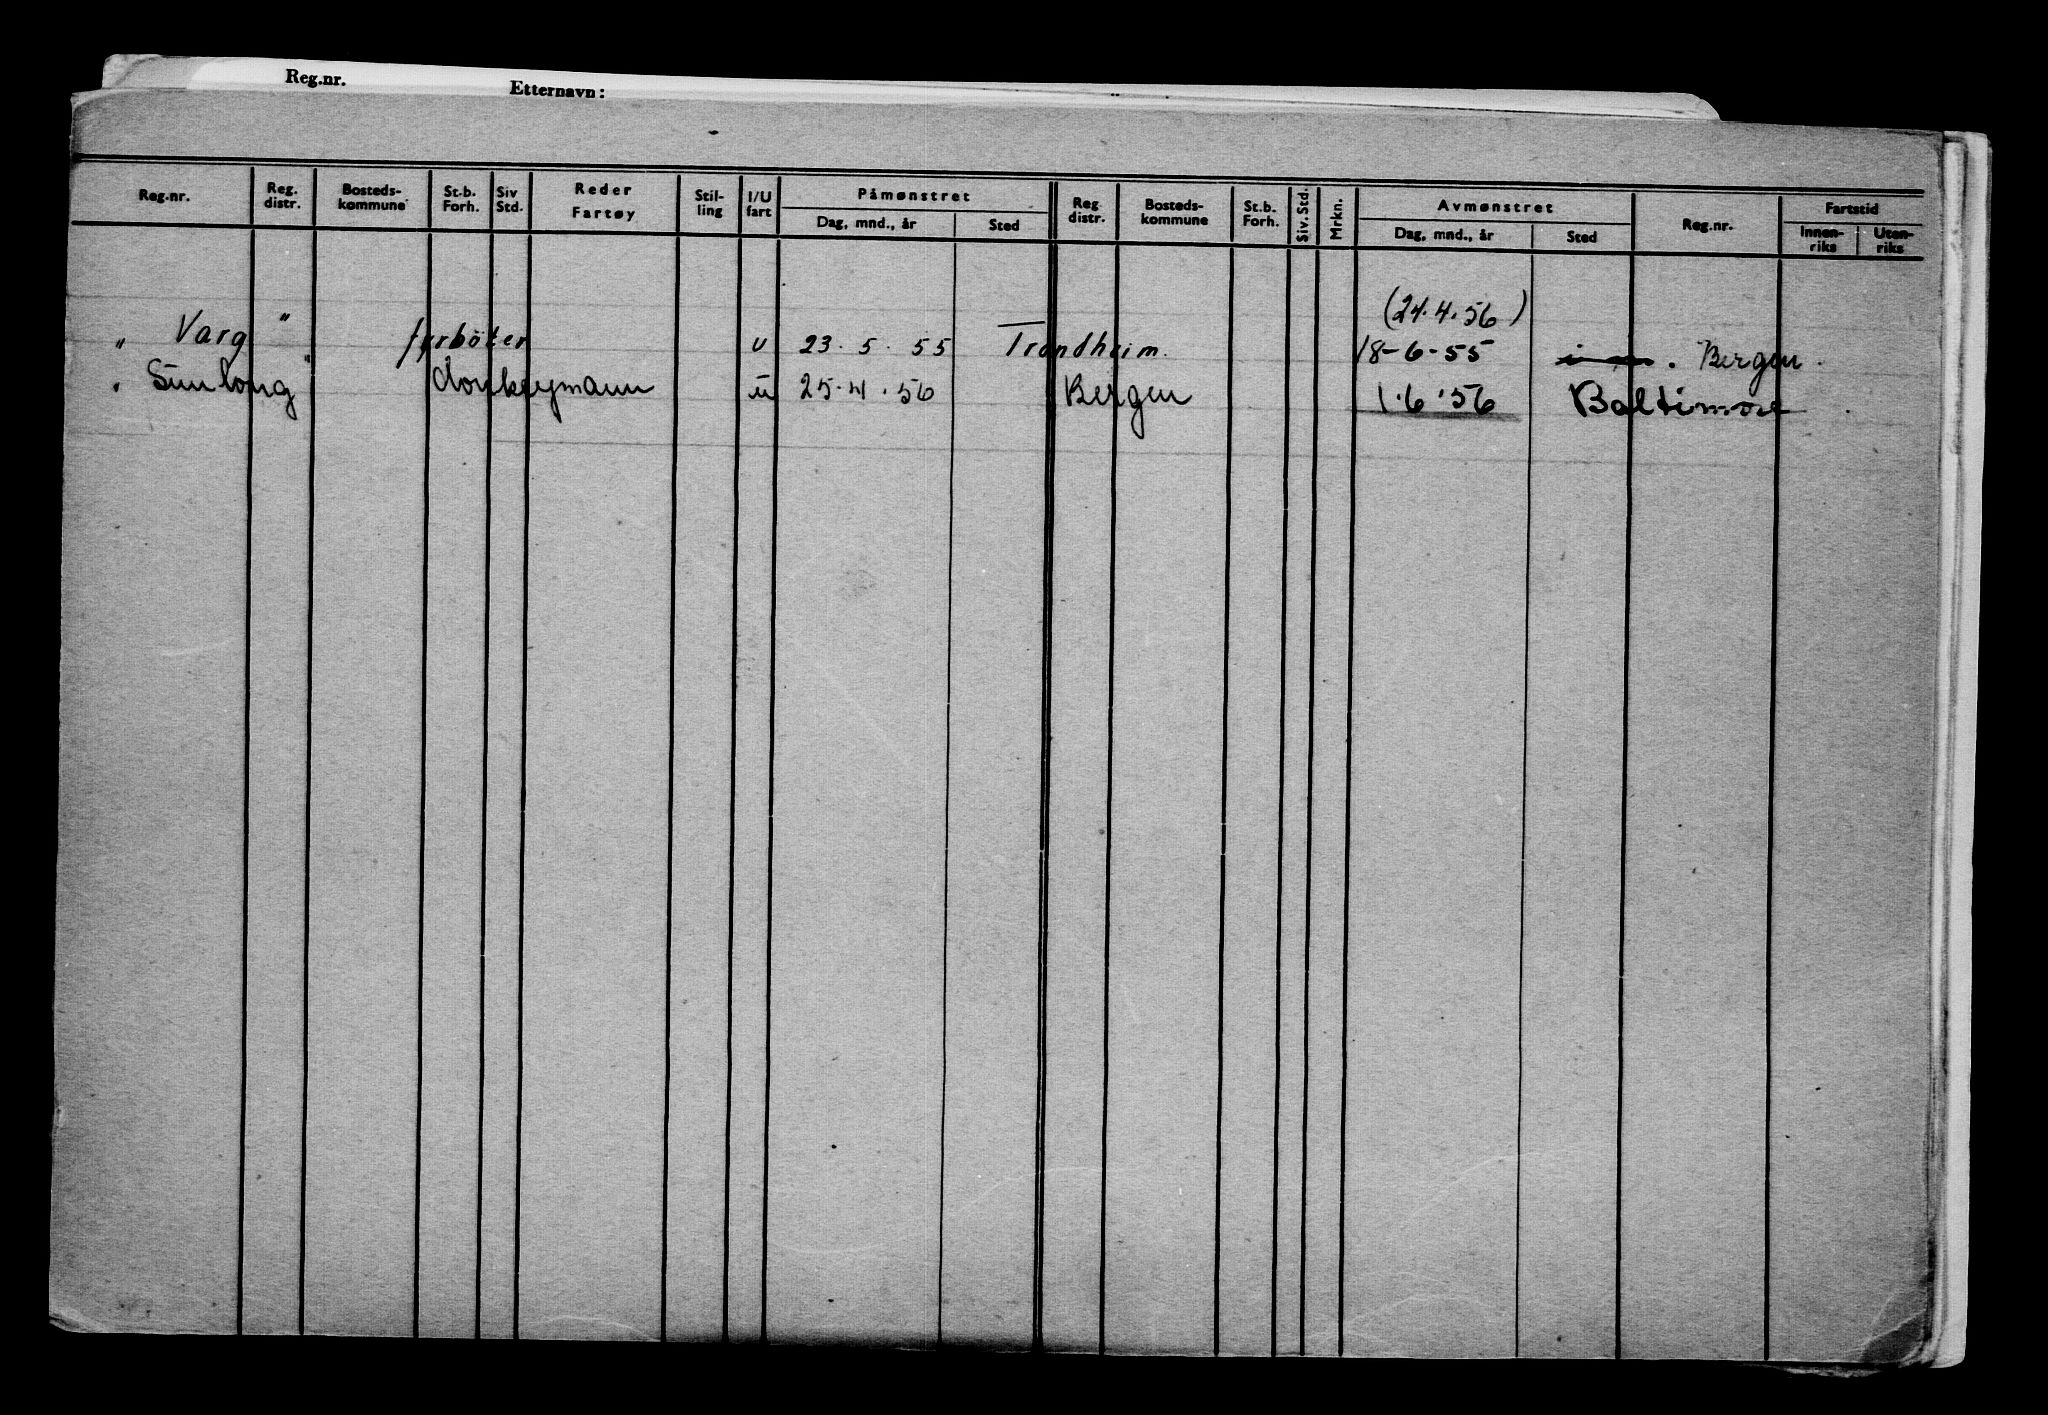 Reg.nr. Etternavn:
Reg.nr. Reg. distr. Bosteds-kommune St.b. Forh. Siv Std. Reder Fartøy Stil-ling I/U fart Påmønstret Dag, mnd., år Sted Reg distr. Bosteds-kommune St.b. Forh. Siv. Std. Mrkn. Avmønstret Dag, mnd., år Sted Reg.nr. Fartstid Innen-riks Uten-riks
(24.4.56)
" Varg " fyrböter u 23.5.55 Trondheim. 18-6-55 . Bergen.
" Sunlong " donkeymann u 25.4.56 Bergen 1.6.56 Baltimore